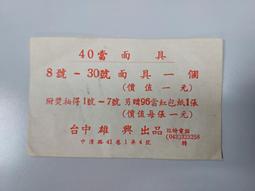 40當面具
8號-30號面具一個
(價值一元)
附獎抽得1號-7號另贈96當紅包紙1張
(價值每張一元)
台中雄興出品
中清路41巷1弄4號